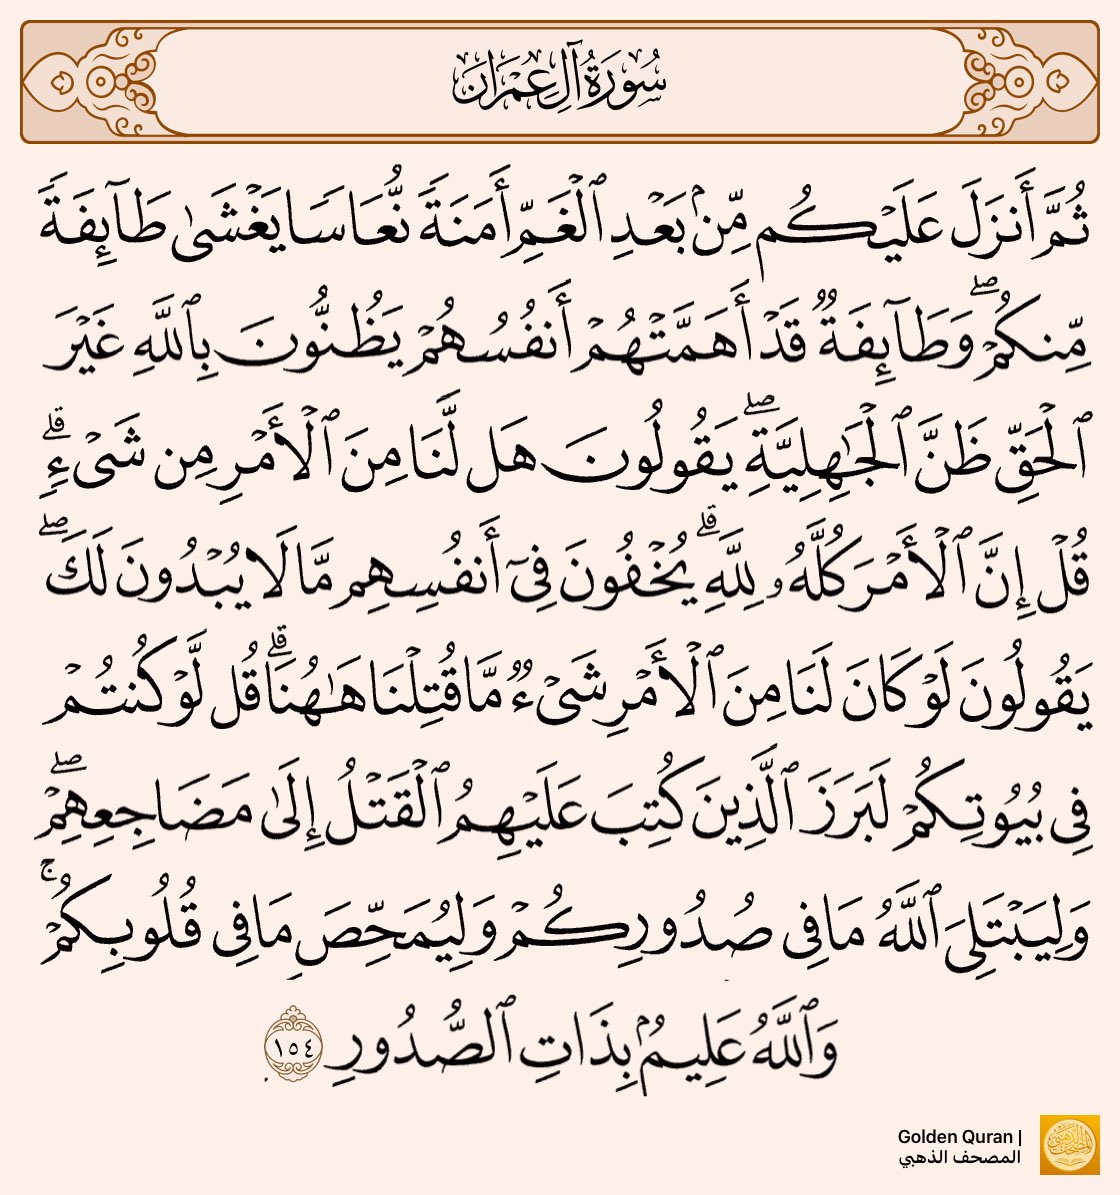 سُورَةُ آلِ عِمْرَانَ
ثُمَّ أَنزَلَ عَلَيۡكُم مِّنۢ بَعۡدِ ٱلۡغَمِّ أَمَنَةٗ نُّعَاسٗا يَغۡشَىٰ طَآئِفَةٗ
مِّنكُمۡۖ وَطَآئِفَةٞ قَدۡ أَهَمَّتۡهُمۡ أَنفُسُهُمۡ يَظُنُّونَ بِٱللَّهِ غَيۡرَ
ٱلۡحَقِّ ظَنَّ ٱلۡجَٰهِلِيَّةِۖ يَقُولُونَ هَل لَّنَا مِنَ ٱلۡأَمۡرِ مِن شَيۡءٖۗ
قُلۡ إِنَّ ٱلۡأَمۡرَ كُلَّهُۥ لِلَّهِۗ يُخۡفُونَ فِيٓ أَنفُسِهِم مَّا لَا يُبۡدُونَ لَكَۖ
يَقُولُونَ لَوۡ كَانَ لَنَا مِنَ ٱلۡأَمۡرِ شَيۡءٞ مَّا قُتِلۡنَا هَٰهُنَاۗ قُل لَّوۡ كُنتُمۡ
فِي بُيُوتِكُمۡ لَبَرَزَ ٱلَّذِينَ كُتِبَ عَلَيۡهِمُ ٱلۡقَتۡلُ إِلَىٰ مَضَاجِعِهِمۡۖ
وَلِيَبۡتَلِيَ ٱللَّهُ مَا فِي صُدُورِكُمۡ وَلِيُمَحِّصَ مَا فِي قُلُوبِكُمۡۚ
وَٱللَّهُ عَلِيمُۢ بِذَاتِ ٱلصُّدُورِ ١٥٤
Golden Quran |
المصحف الذهبي